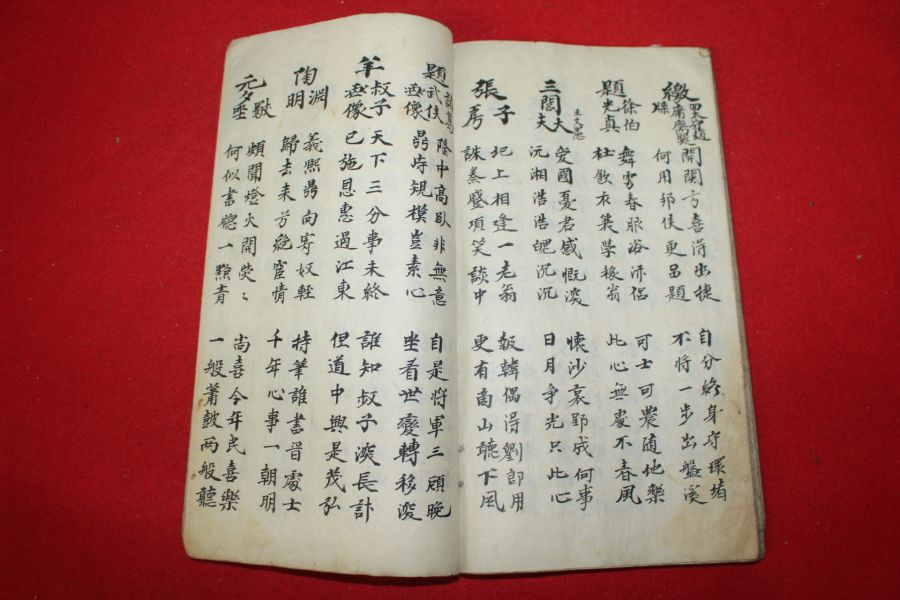 繳
閒關方喜淂出捷 自分終身守環堵
何用邠侯更品題 不將一步出盤溪
題徐伯光真
舞雩春服浴沂侶 可士可農隨地樂
杜飲衣裳學稼翁 此心無處不春風
三閭大夫
愛國憂君感慨深 懷沙哀郢成何事
沅湘浩浩魂沉沉 日月争光只此心
張子房
圯上相逢一老翁 報韓偶淂劉郎用
誅秦蹙項笑談中 更有南山聴下風
題諸葛武侯畫像
隆中高臥非無意 自是将軍三顧晚
鼎峙規模豈素心 坐看世變轉移深
羊叔子畫像
天下三分事未終 誰知叔子深長計
已施恩惠過江東 但道中興是茂弘
陶淵明
義熙鼎向寄奴輕 特筆誰書晉處士
歸去来兮絶宦情 千年心事一朝明
元夕默坐
頻聞燈火開熒〻 尚喜今年民喜樂
何似書窓一點青 一般蕭鼓两般聽